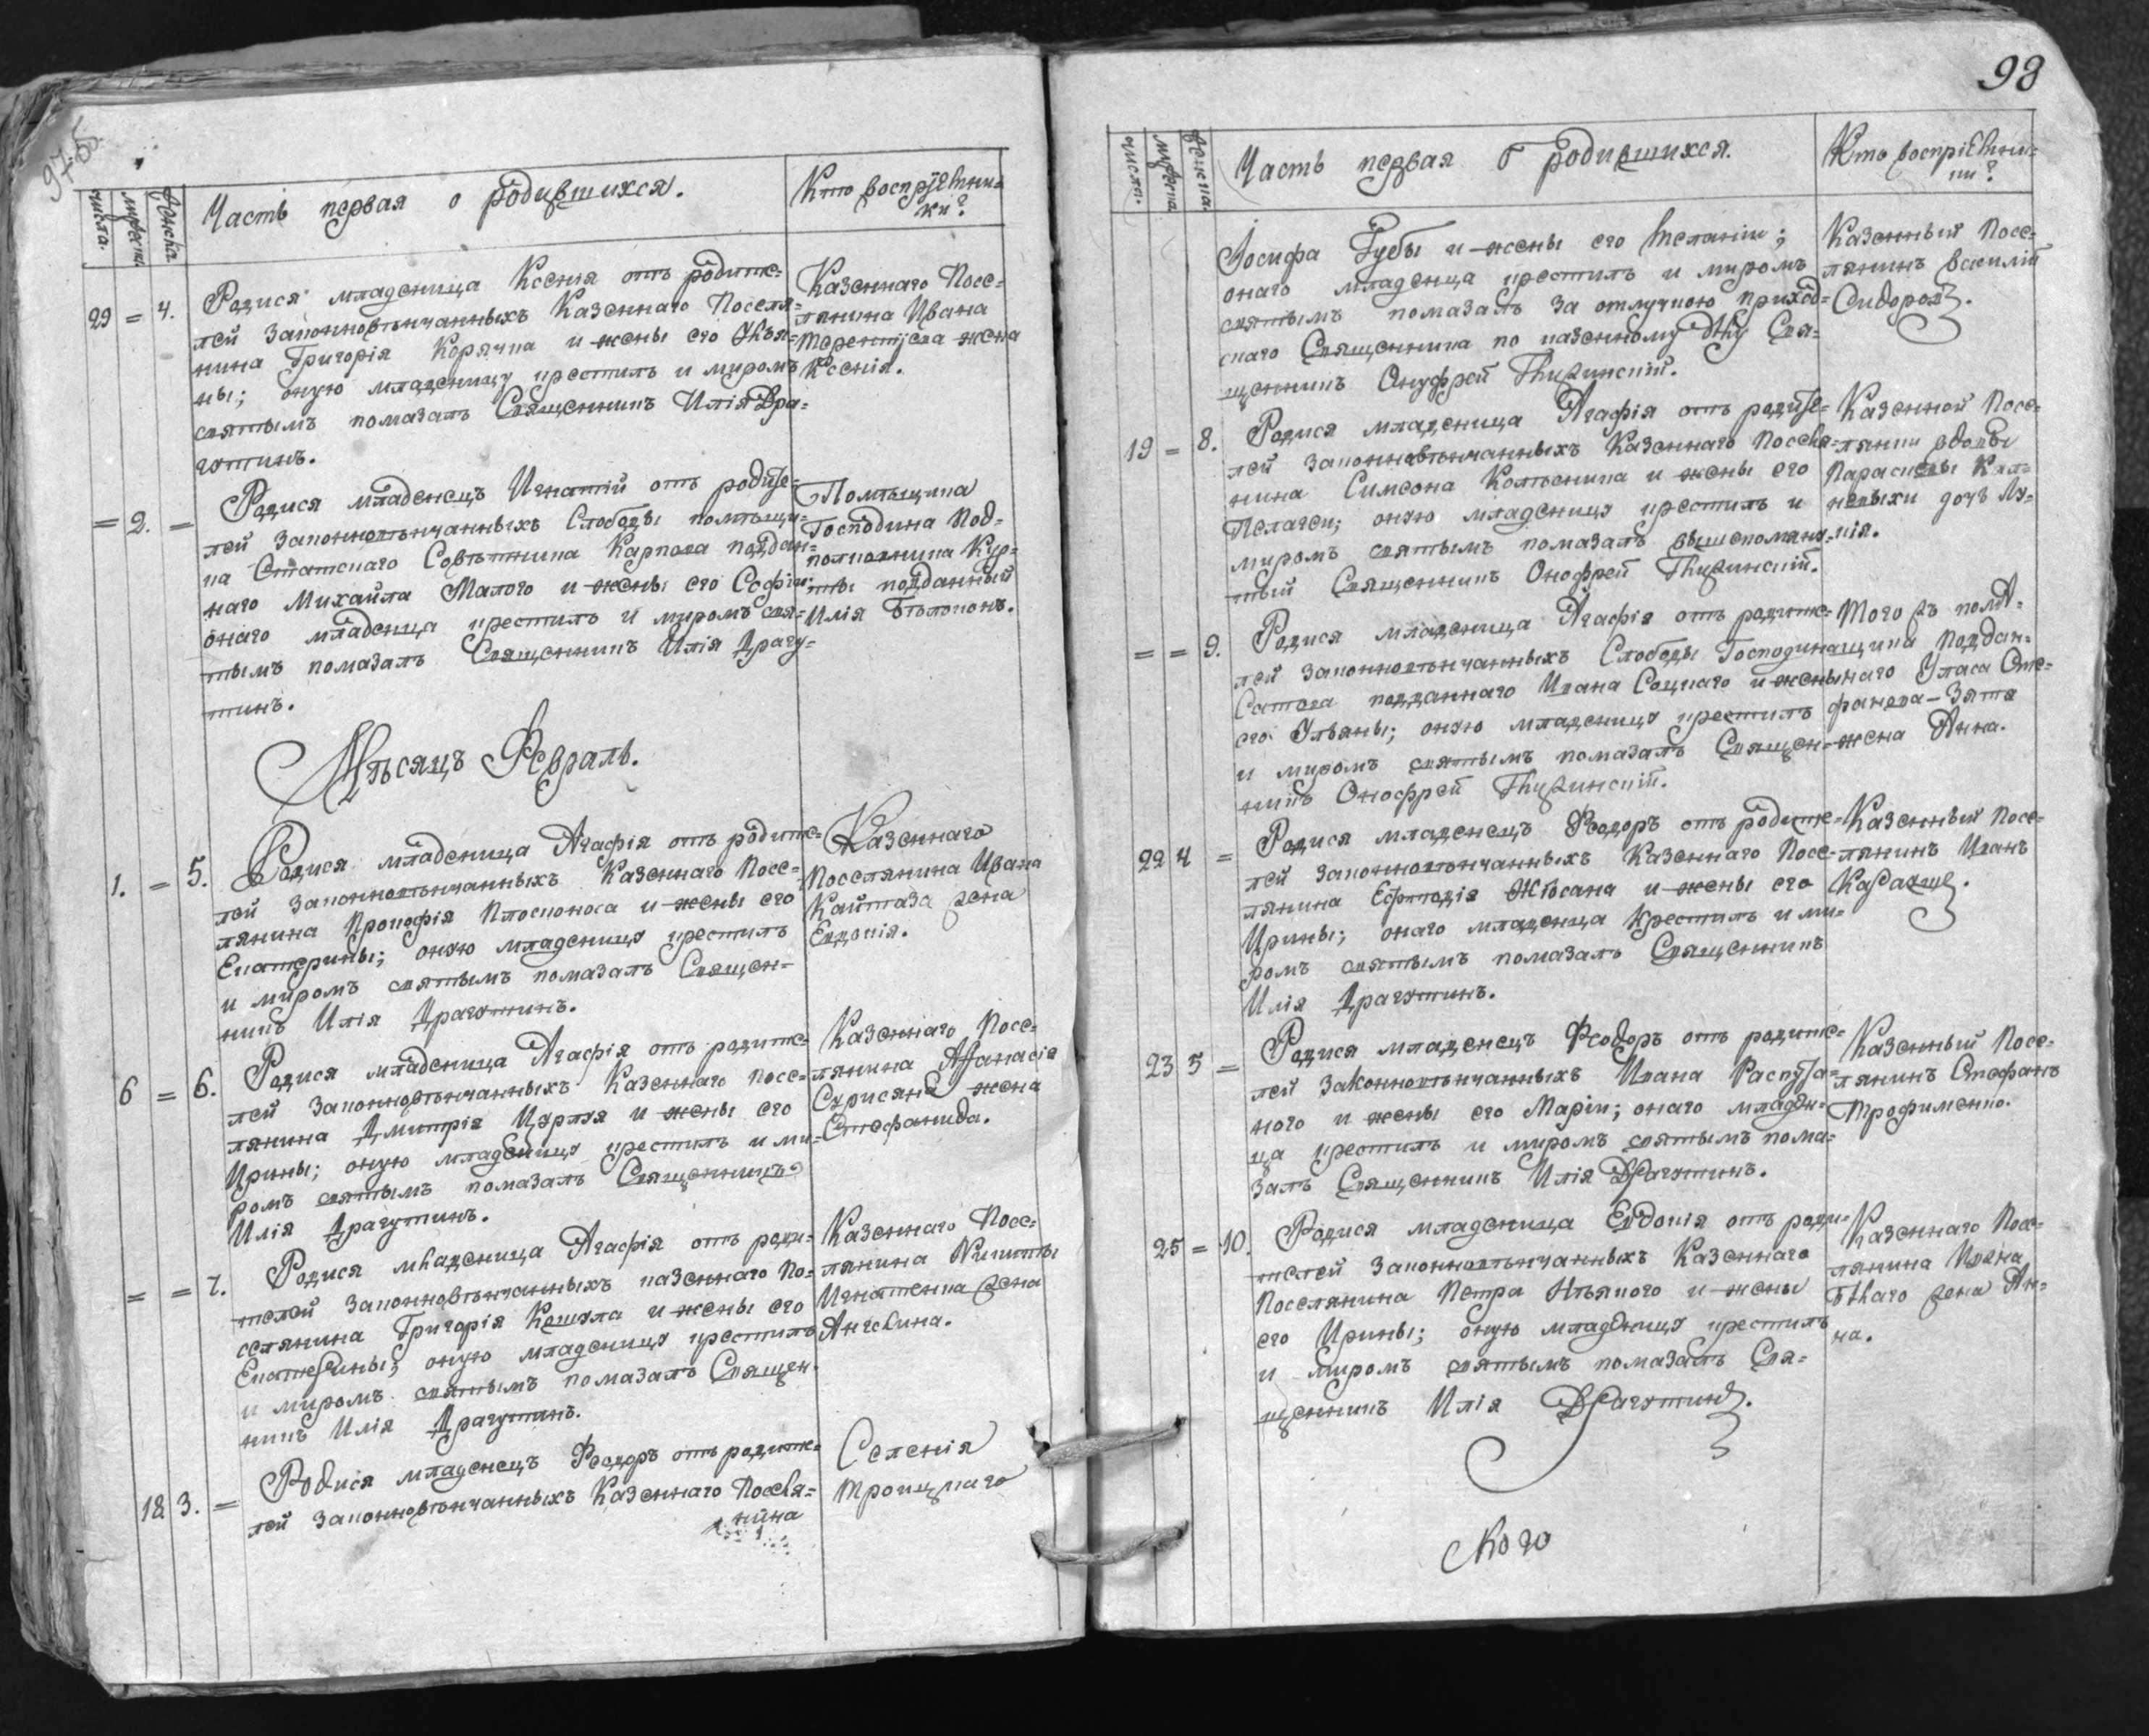 числа.
мужеска.
женска
Часть первая о родившихся.
Кто воспріемни-
ки?
29 = 4.
Родися младеница Ксенія отъ родите-
лей законновѣнчанныхъ Казеннаго Поселя-
нина Григорія Корячка и жены его Улья-
ны; оную младеницу крестилъ и миромъ
святымъ помазалъ Священникъ Илія Дра-
гутинъ.
Казеннаго Посе-
лянина Ивана
жена
Ксенія.
= 2. =
Родися младенецъ Игнатій отъ родите-
лей законновѣнчанныхъ Слободы помѣщи-
ка Статскаго Совѣтника Карпова поддан-
наго Михайла Малого и жены его Софіи;
онаго младенца крестилъ и миромъ свя-
тымъ помазалъ Священникъ Илія Драгу-
тинъ.
Помѣщика
Господина Под-
полковника Кур-
ты подданный
Илія Бѣлоконь.
Мѣсяцъ Февраль.
1. = 5.
Родися младеница Агафія отъ родите-
лей законновѣнчанныхъ Казеннаго Посе-
лянина Прокофія Плосконоса и жены его
Екатерины; оную младеницу крестилъ
и миромъ святымъ помазалъ Священ-
никъ Илія Драгутинъ.
Казеннаго
Поселянина Ивана
Кайтаза жена
Евдокія.
6 = 6.
Родися младеница Агафія отъ родите-
лей законновѣнчанныхъ Казеннаго Посе-
лянина Дмитрія и жены его
Ирины; оную младеницу крестилъ и ми-
ромъ святымъ помазалъ Священникъ
Илія Драгутинъ.
Казеннаго Посе-
лянина Афанасія
жена
Стефанида.
= = 7.
Родися младеница Агафія отъ роди-
телей законновѣнчанныхъ казеннаго По-
селянина Григорія Кошула и жены его
Екатерины; оную младеницу крестилъ
и миромъ святымъ помазалъ Священ-
никъ Илія Драгутинъ.
Казеннаго Посе-
лянина Никиты
Игнатенка жена
Ангелина.
18 3. =
Родися младенецъ Феодоръ отъ родите-
лей законновѣнчанныхъ Казеннаго Поселя-
нина
Селенія
Троицкаго
98
числа.
мужеска.
женска.
Часть первая о родившихся.
Кто воспріемни-
ки?
Іосифа Губы и жены его Меланіи;
онаго младенца крестилъ и миромъ
святымъ помазалъ за отлучкою приход-
скаго Священника по казенному дѣлу Свя-
щенникъ Онуфрей
Казенный Посе-
лянинъ Василій
Сидоровъ.
19 = 8.
Родися младеница Агафія отъ родите-
лей законновѣнчанныхъ Казеннаго Поселя-
нина Симеона Колѣсника и жены его
Пелагеи; оную младеницу крестилъ и
миромъ святымъ помазалъ вышепомяну-
тый Священникъ Онофрей
Казенной Посе-
лянки вдовы
Параскевы
дочь Лу-
кія.
= = 9.
Родися младеница Агафія отъ родите-
лей законновѣнчанныхъ Слободы Господина
Сатова подданнаго Ивана Соцкаго и жены
его Ульяны; оную младеницу крестилъ
и миромъ святымъ помазалъ Священ-
никъ Онофрей
Того жъ помѣ-
щика поддан-
наго Уласа Сте-
фанова Зятя
жена Анна.
22 4 =
Родися младенецъ Феодоръ отъ родите-
лей законновѣнчанныхъ Казеннаго Посе-
лянина и жены его
Ирины; онаго младенца крестилъ и ми-
ромъ святымъ помазалъ Священникъ
Илія Драгутинъ.
Казенный Посе-
лянинъ Иванъ
23 5 =
Родися младенецъ Феодоръ отъ родите-
лей законновѣнчанныхъ Ивана Распута-
ного и жены его Маріи; онаго младен-
ца крестилъ и миромъ святымъ пома-
залъ Священникъ Илія Драгутинъ.
Казенный Посе-
лянинъ Стефанъ
Трофименко.
25 = 10.
Родися младеница Евдокія отъ роди-
телей законновѣнчанныхъ Казеннаго
Поселянина Петра и жены
его Ирины; оную младеницу крестилъ
и миромъ святымъ помазалъ Свя-
щенникъ Илія Драгутинъ.
Казеннаго Посе-
лянина Ивана
Бѣлаго жена Ан-
на.